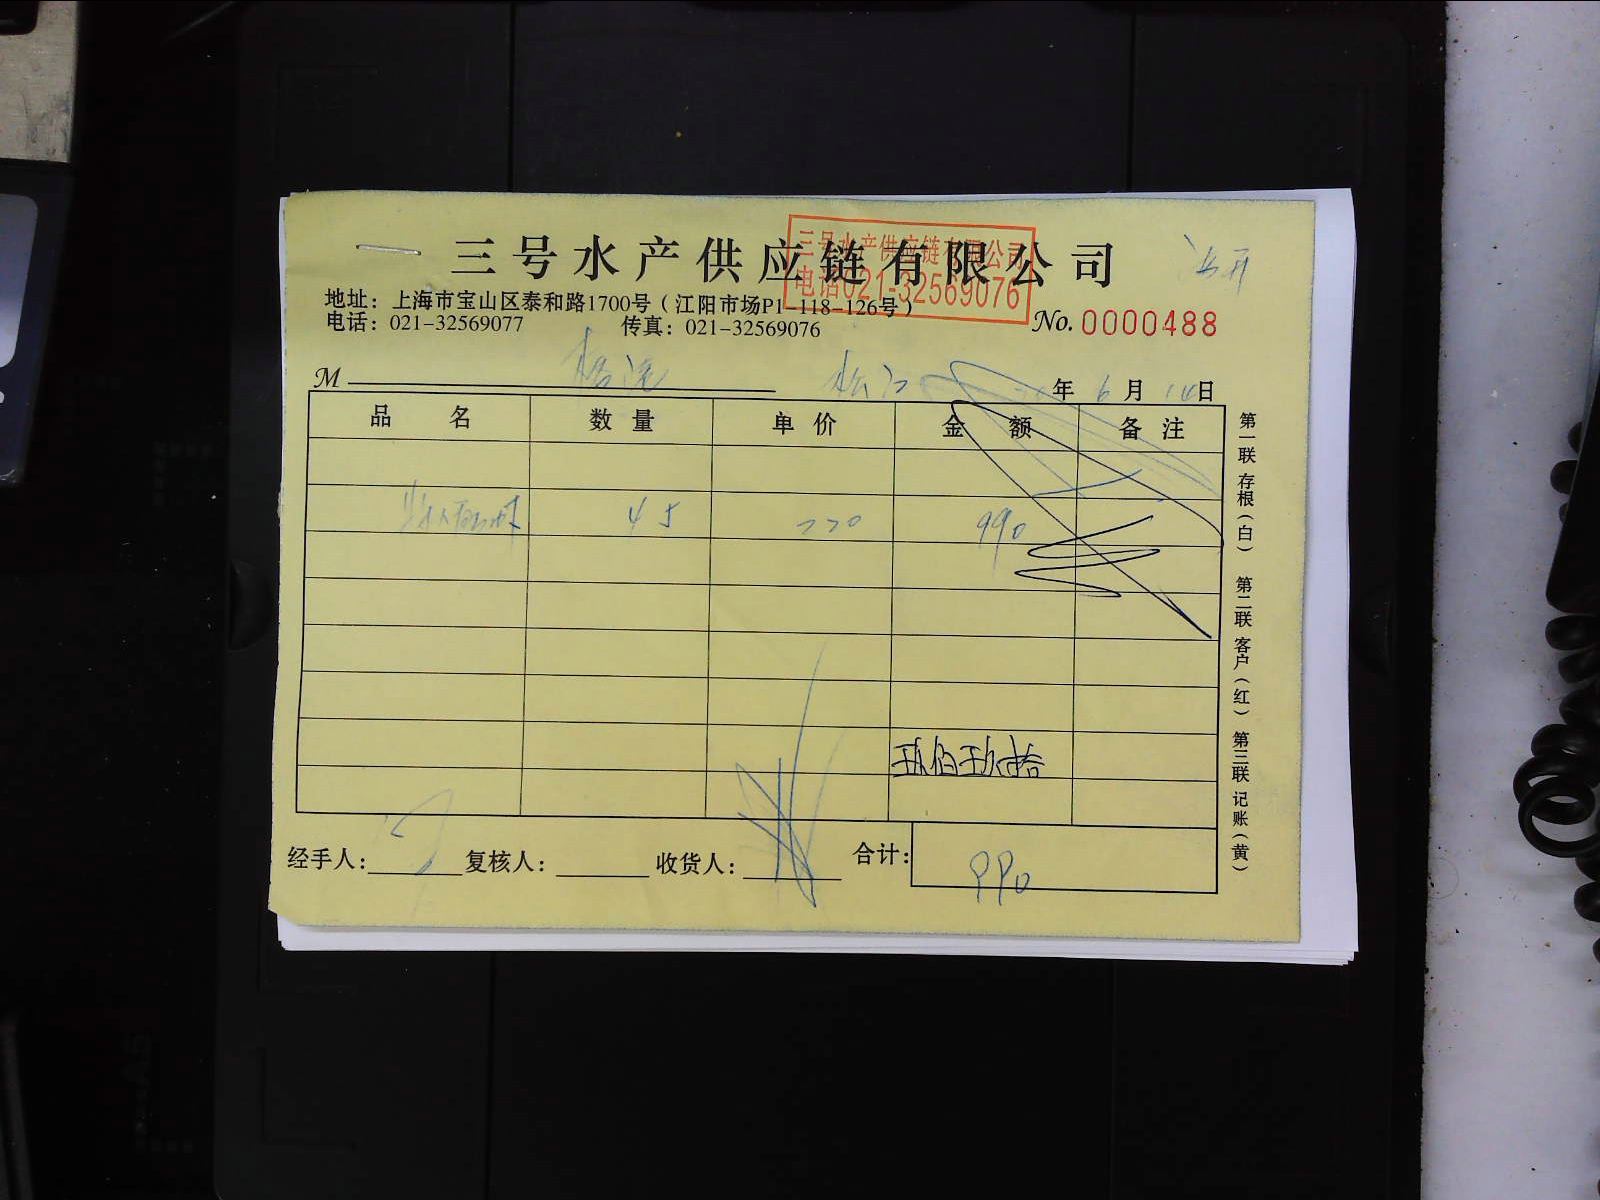 三号水产供应链有限公司
三号水产供应链有限公司
电话021-32569076
地址：上海市宝山区泰和路1700号（江阳市场P1-118-126号）
电话：021-32569077 传真：021-32569076
No. 0000488
M 松江 年 6 月 14 日
品名 数量 单价 金额 备注
45 220 990
玖佰玖拾
经手人： 复核人： 收货人： 合计： 990
第一联 存根（白） 第二联 客户（红） 第三联 记账（黄）